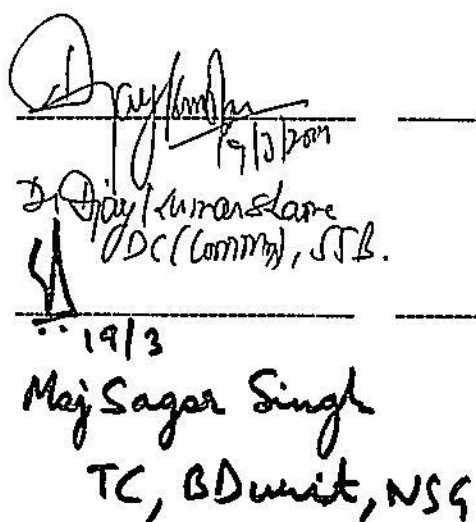 19/3/2001
Dr Ajay Kumar
DC (Commn), SSB.
19/3
Maj Sagar Singh
TC, BD unit, NSG